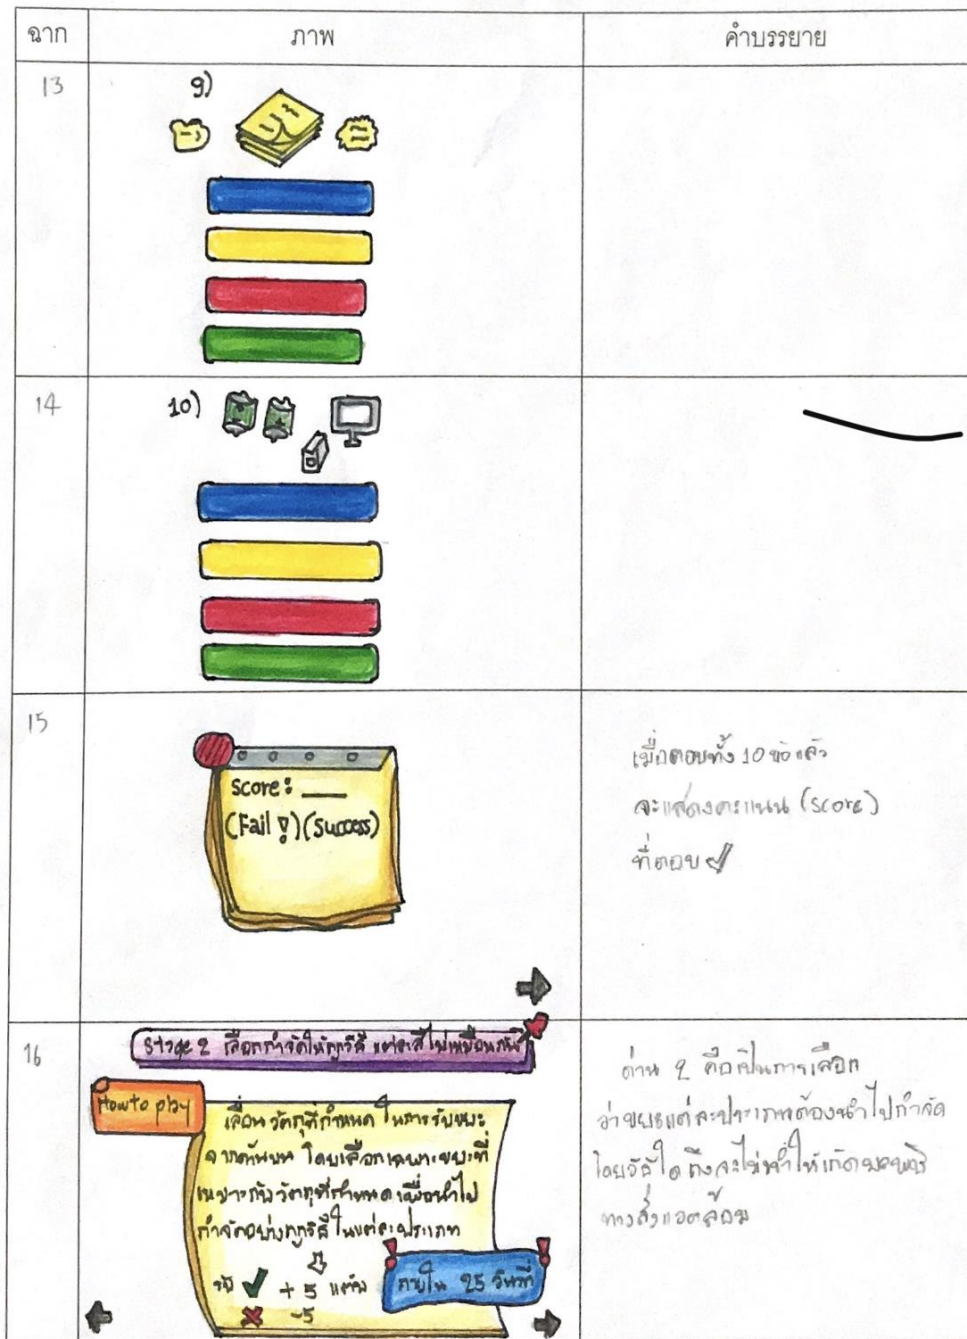 ฉาก ภาพ คำบรรยาย
13
9)
14
10)
15
score : ____
(Fail !) (Success)
เมื่อตอบทั้ง 10 ข้อแล้ว
จะแสดงคะแนน (score)
ที่ตอบ ✓
16
Stage 2 เลือกกำจัดให้ถูกวิธี แต่ละสีไม่เหมือนกันนะ
How to play
เลื่อนวัตถุที่กำหนด ในการรับขยะ
จากด้านบน โดยเลือกเฉพาะขยะที่
เหมาะกับวัตถุที่กำหนดเพื่อนำไป
กำจัดอย่างถูกวิธี ในแต่ละประเภท
รับ ✓ + 5 แต้ม
✗ -5
ภายใน 25 วินาที
ด่าน 2 คือเป็นการเลือก
ว่าขยะแต่ละประเภทต้องนำไปกำจัด
โดยวิธีใด ถึงจะไม่ทำให้เกิดมลพิษ
ทางสิ่งแวดล้อม